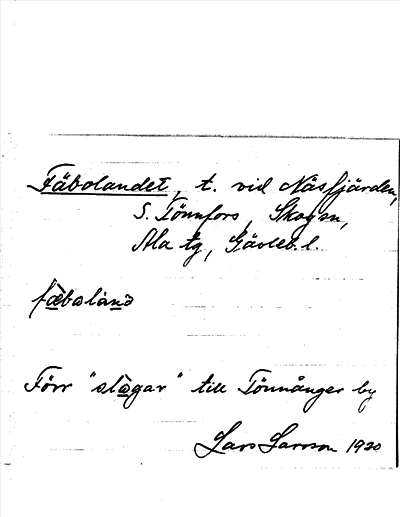 Fäbolandet, t. vid Näsfjärden,
S. Tönnfors, Skog sn,
Ala tg, Gävleb. l.
fæ̀bolánd
Förr "slògar" till Tönnånger by
Lars Larsson 1920